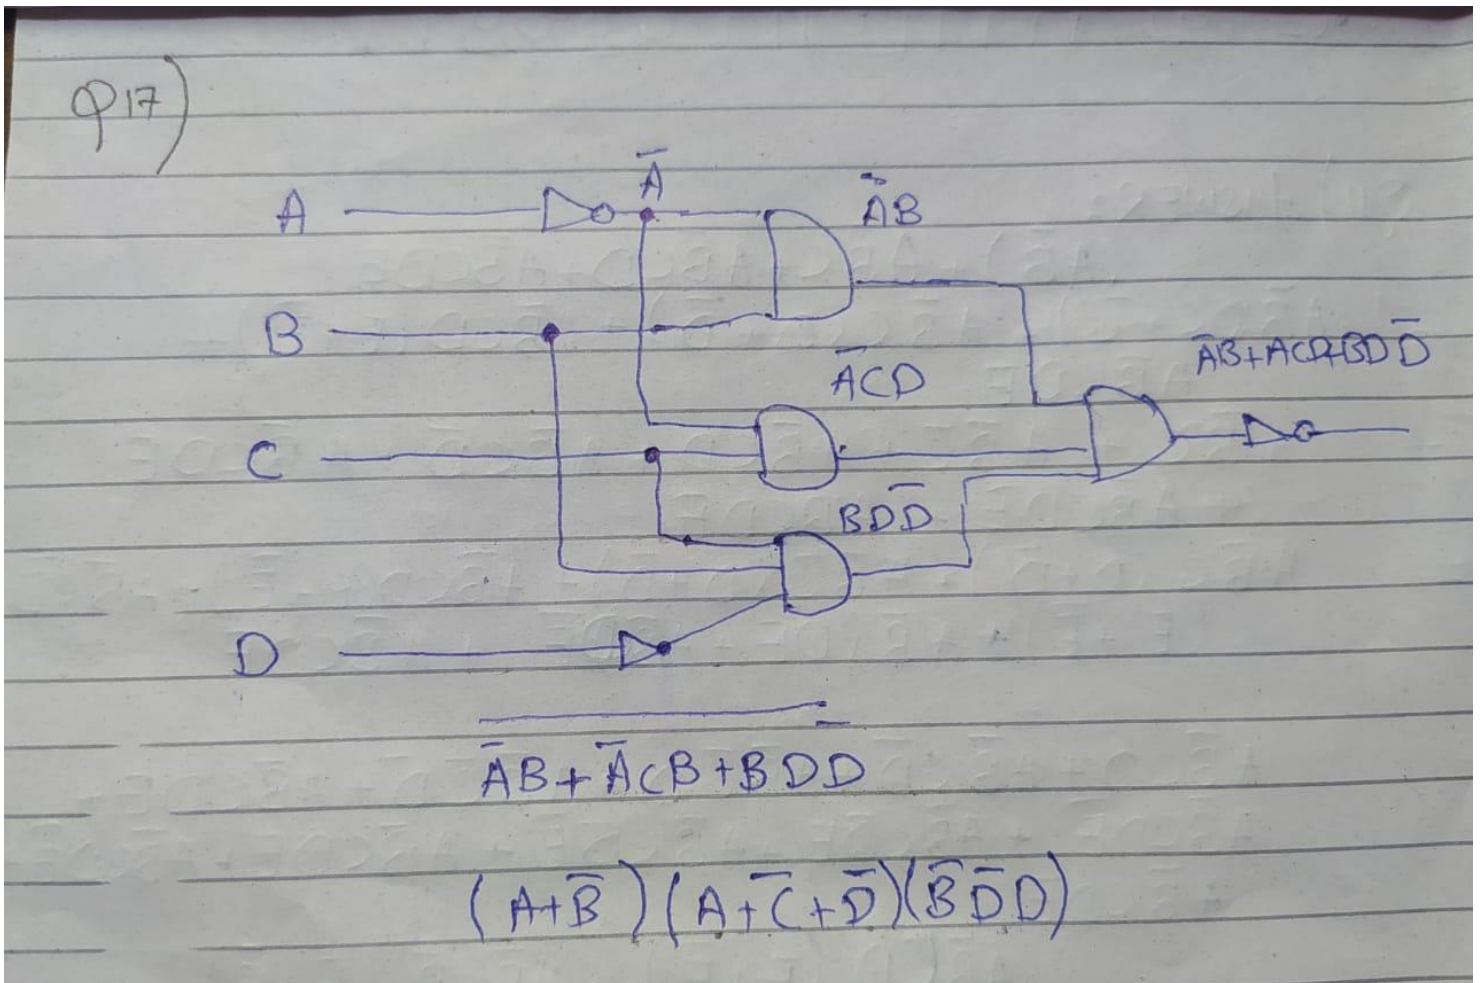 Q17)
A̅
A
A̅B
B
A̅B+ACD+BDD̅
A̅CD
C
BDD̅
D
A̅B+A̅CB+BDD̅
(A+B̅)(A+C̅+D̅)(B̅D̅D)